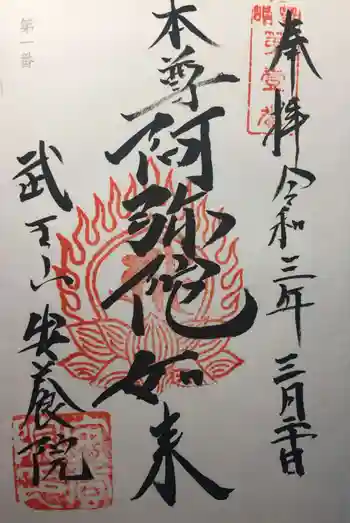 奉拝 令和三年 三月二日
本尊 阿弥陀如来
武王山 安養院
第一番